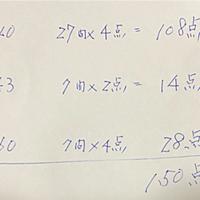 60 27問×4点 = 108点
43 7問×2点 = 14点
60 7問×4点 28点
150点